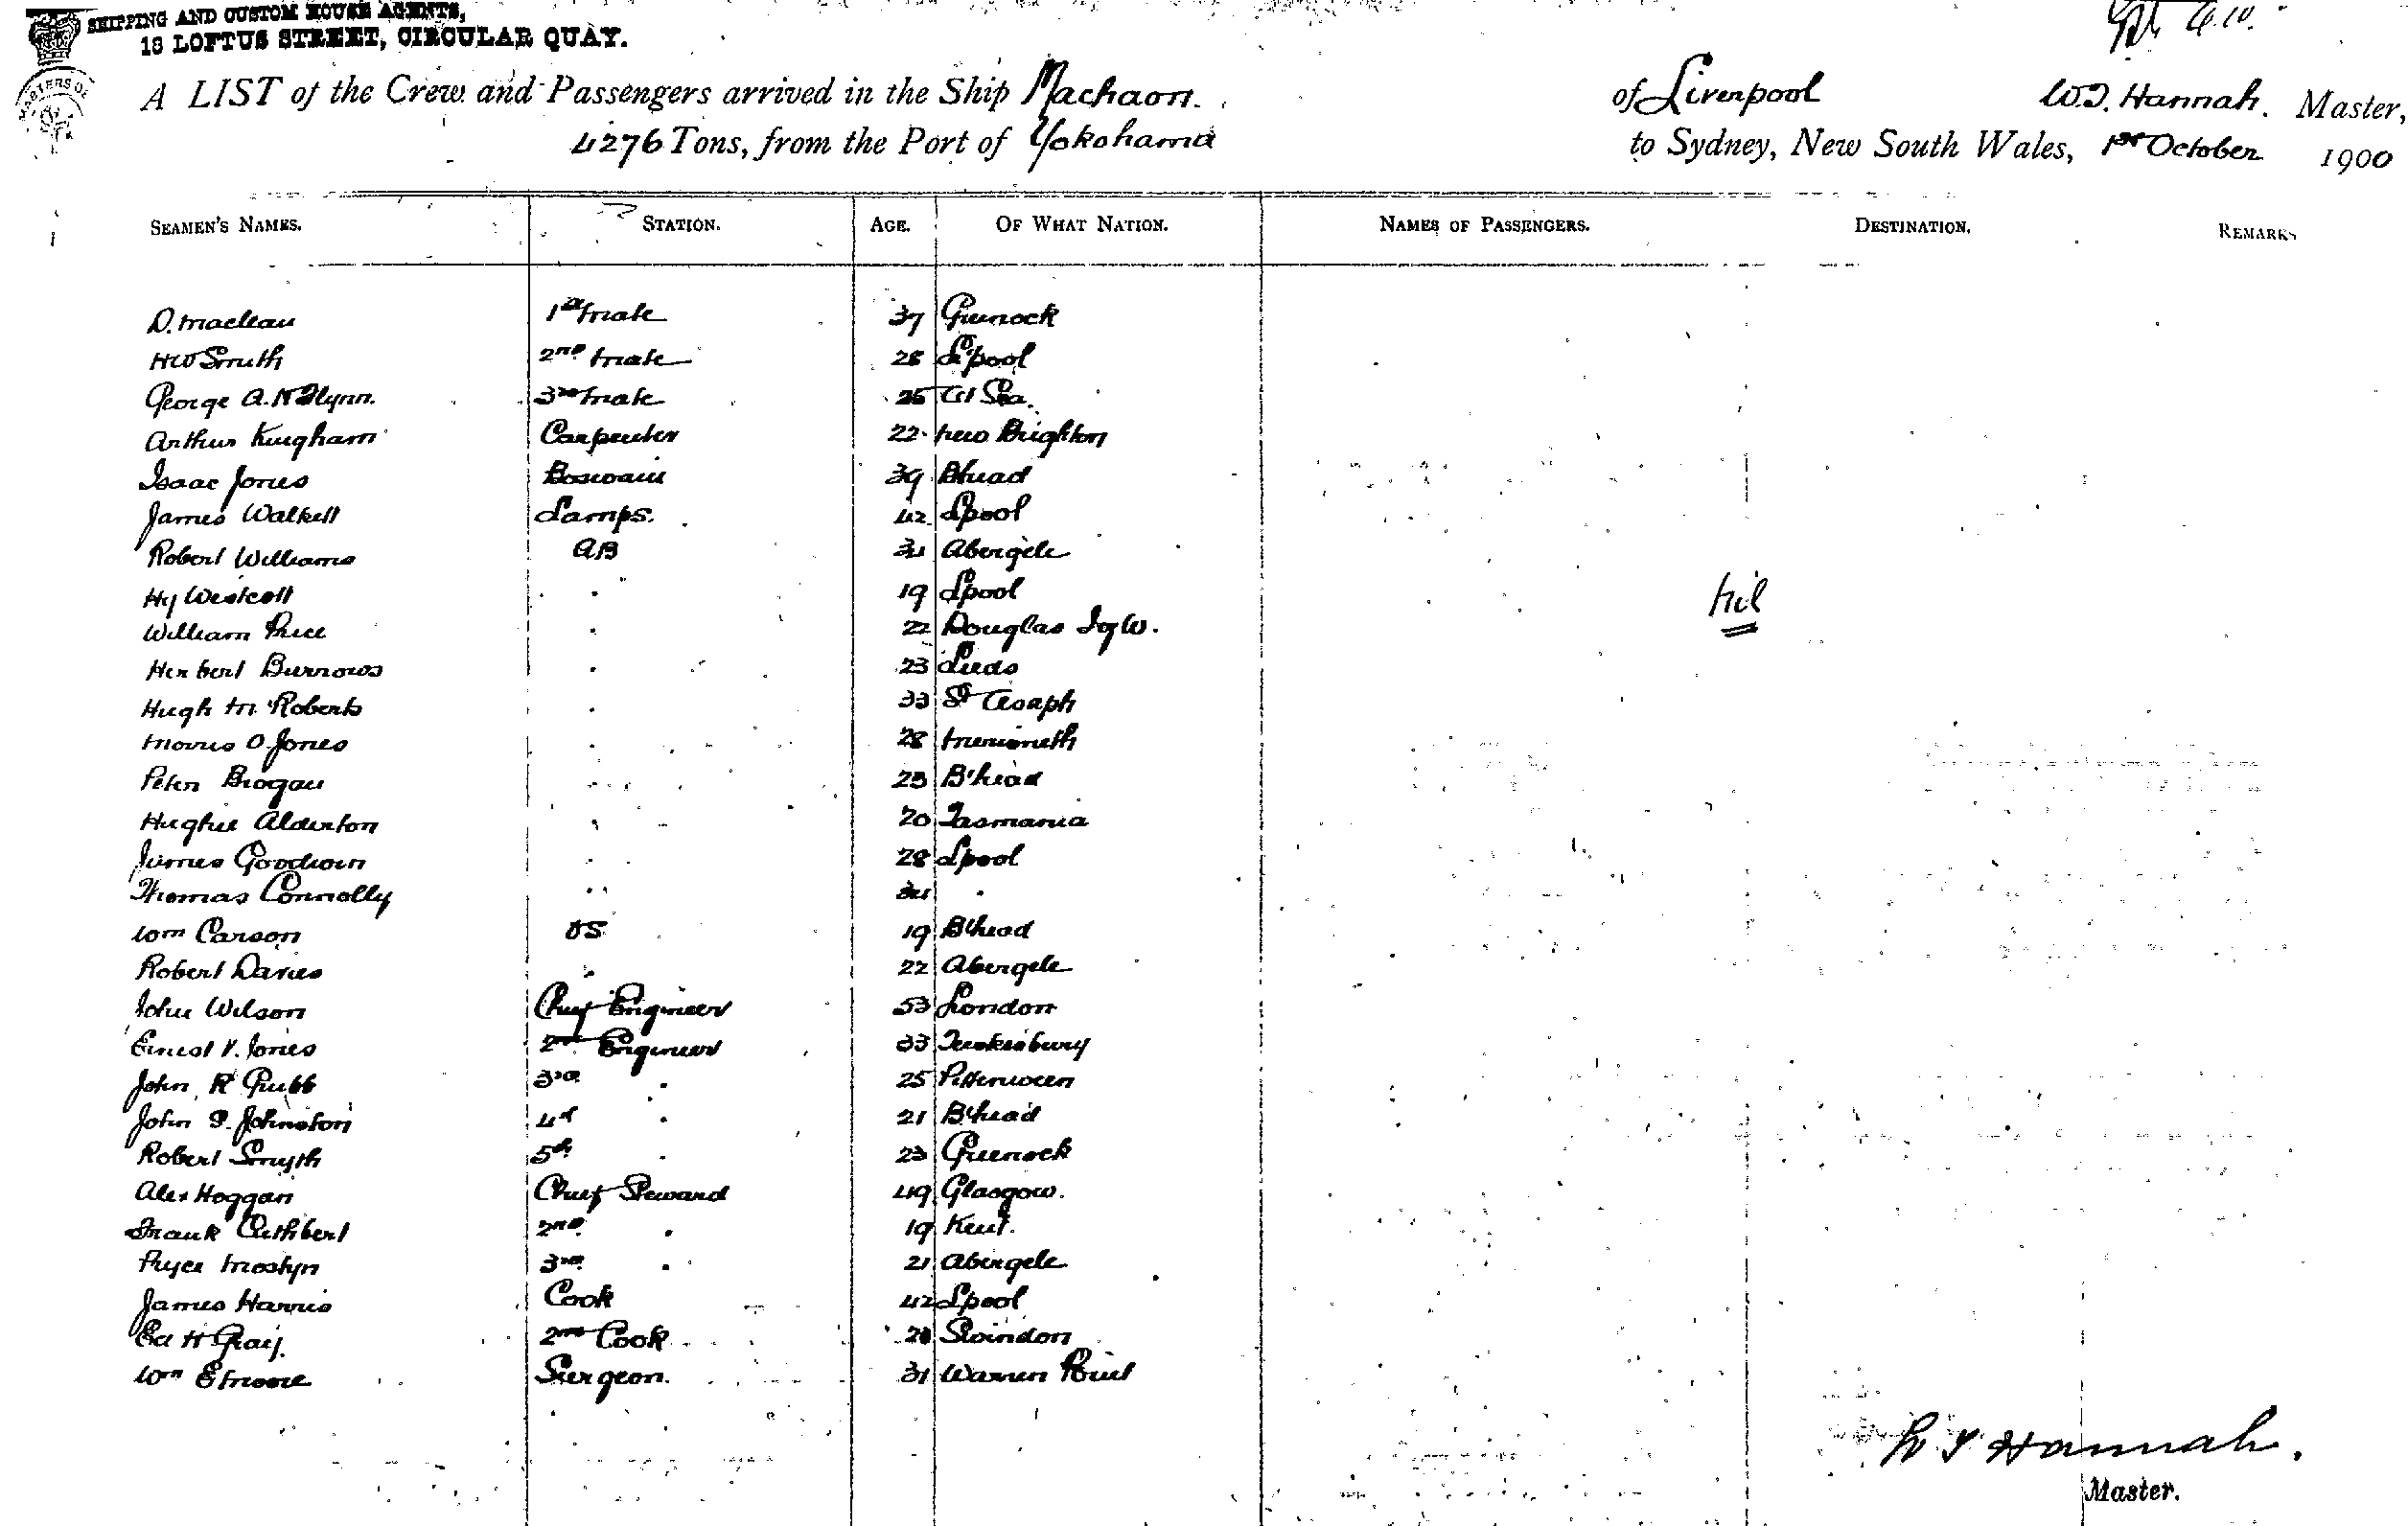 SHIPPING AND CUSTOM HOUSE AGENTS,
18 LOFTUS STREET, CIRCULAR QUAY.
A LIST of the Crew and Passengers arrived in the Ship Machaon. of Liverpool W.T. Hannah. Master,
4276 Tons, from the Port of Yokohama to Sydney, New South Wales, 1st October 1900
SEAMEN'S NAMES. STATION. AGE. OF WHAT NATION. NAMES OF PASSENGERS. DESTINATION. REMARKS
D. Maclean 1st Mate 37 Greenock
HW Smith 2nd Mate 28 L'pool
George A. Flynn. 3rd Mate 25 At Sea.
Arthur Kingham Carpenter 22 New Brighton
Isaac Jones Boswain 39 B'head
James Walkell Lamps. 42 Lpool
Robert Williams AB Abergele
Hy Westcott " 19 Lpool Nil
William Price " 22 Douglas I of W.
Herbert Burrows " 23 Leeds
Hugh M Roberts " 33 St Asaph
Morris O. Jones " 28 Merioneth
Peter Brogan " 23 B'head
Hughie Alderton " 20 Tasmania
James Goodwin " 28 Lpool
Thomas Connolly " "
Wm Carson OS 19 B'head
Robert Davies " 22 Abergele
John Wilson Chief Engineer 53 London
Ernest V. Jones 2nd Engineer 33 Tewkesbury
John R Grubb 3rd " 25 Pittenween
John S. Johnston 4th " 21 B'head
Robert Smyth 5th " 23 Greenock
Alex Hoggan Chief Steward 49 Glasgow.
Frank Cuthbert 2nd " 19 Kent.
Pryce Mostyn 3rd " 21 Abergele
James Harris Cook 42 Lpool
Ed H Gray. 2nd Cook Swindon
Wm E Moore Surgeon. 31 Warren Point
W T Hannah.
Master.